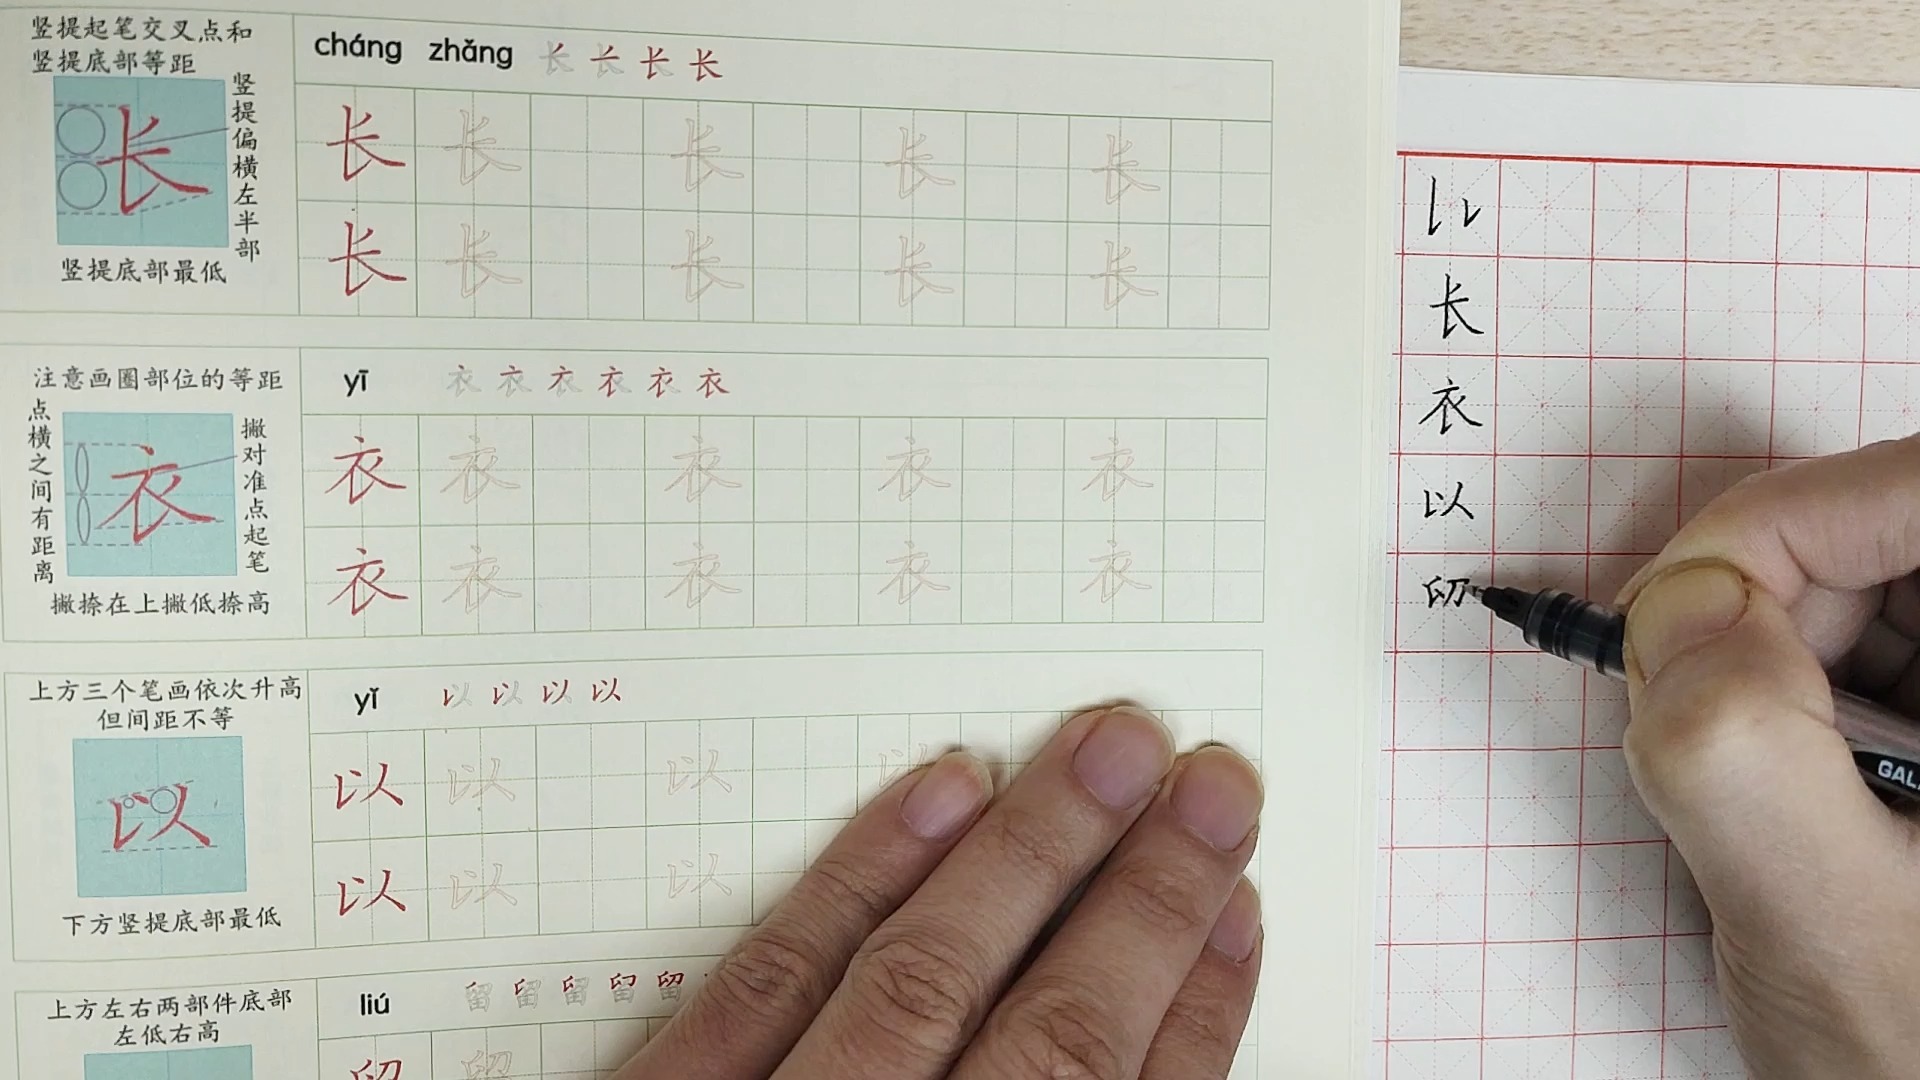 竖提起笔交叉点和
竖提底部等距
竖提偏横左半部
长
竖提底部最低
cháng zhǎng 长 长 长 长
长 长 长 长 长
长 长 长 长 长
注意画圈部位的等距
点横之间有距离
衣
撇对准点起笔
撇捺在上撇低捺高
yī 衣 衣 衣 衣 衣 衣
衣 衣 衣 衣 衣
衣 衣 衣 衣 衣
上方三个笔画依次升高
但间距不等
以
下方竖提底部最低
yǐ 以 以 以 以
以 以 以 以
以 以 以
上方左右两部件底部
左低右高
liú 留 留 留 留 留
长
衣
以